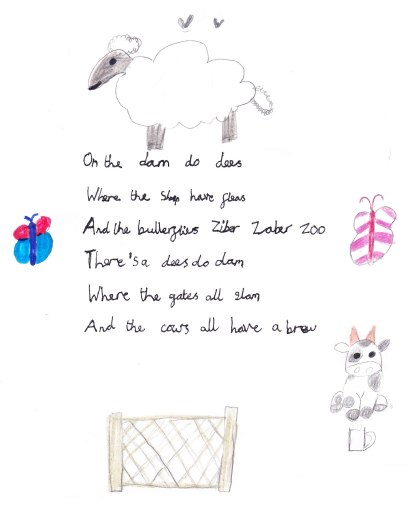 On the dam do dees
Where the Sheep have fleas
And the butterflies Ziber Zaber Zoo
There's a dees do dam
Where the gates all slam
And the cows all have a brew